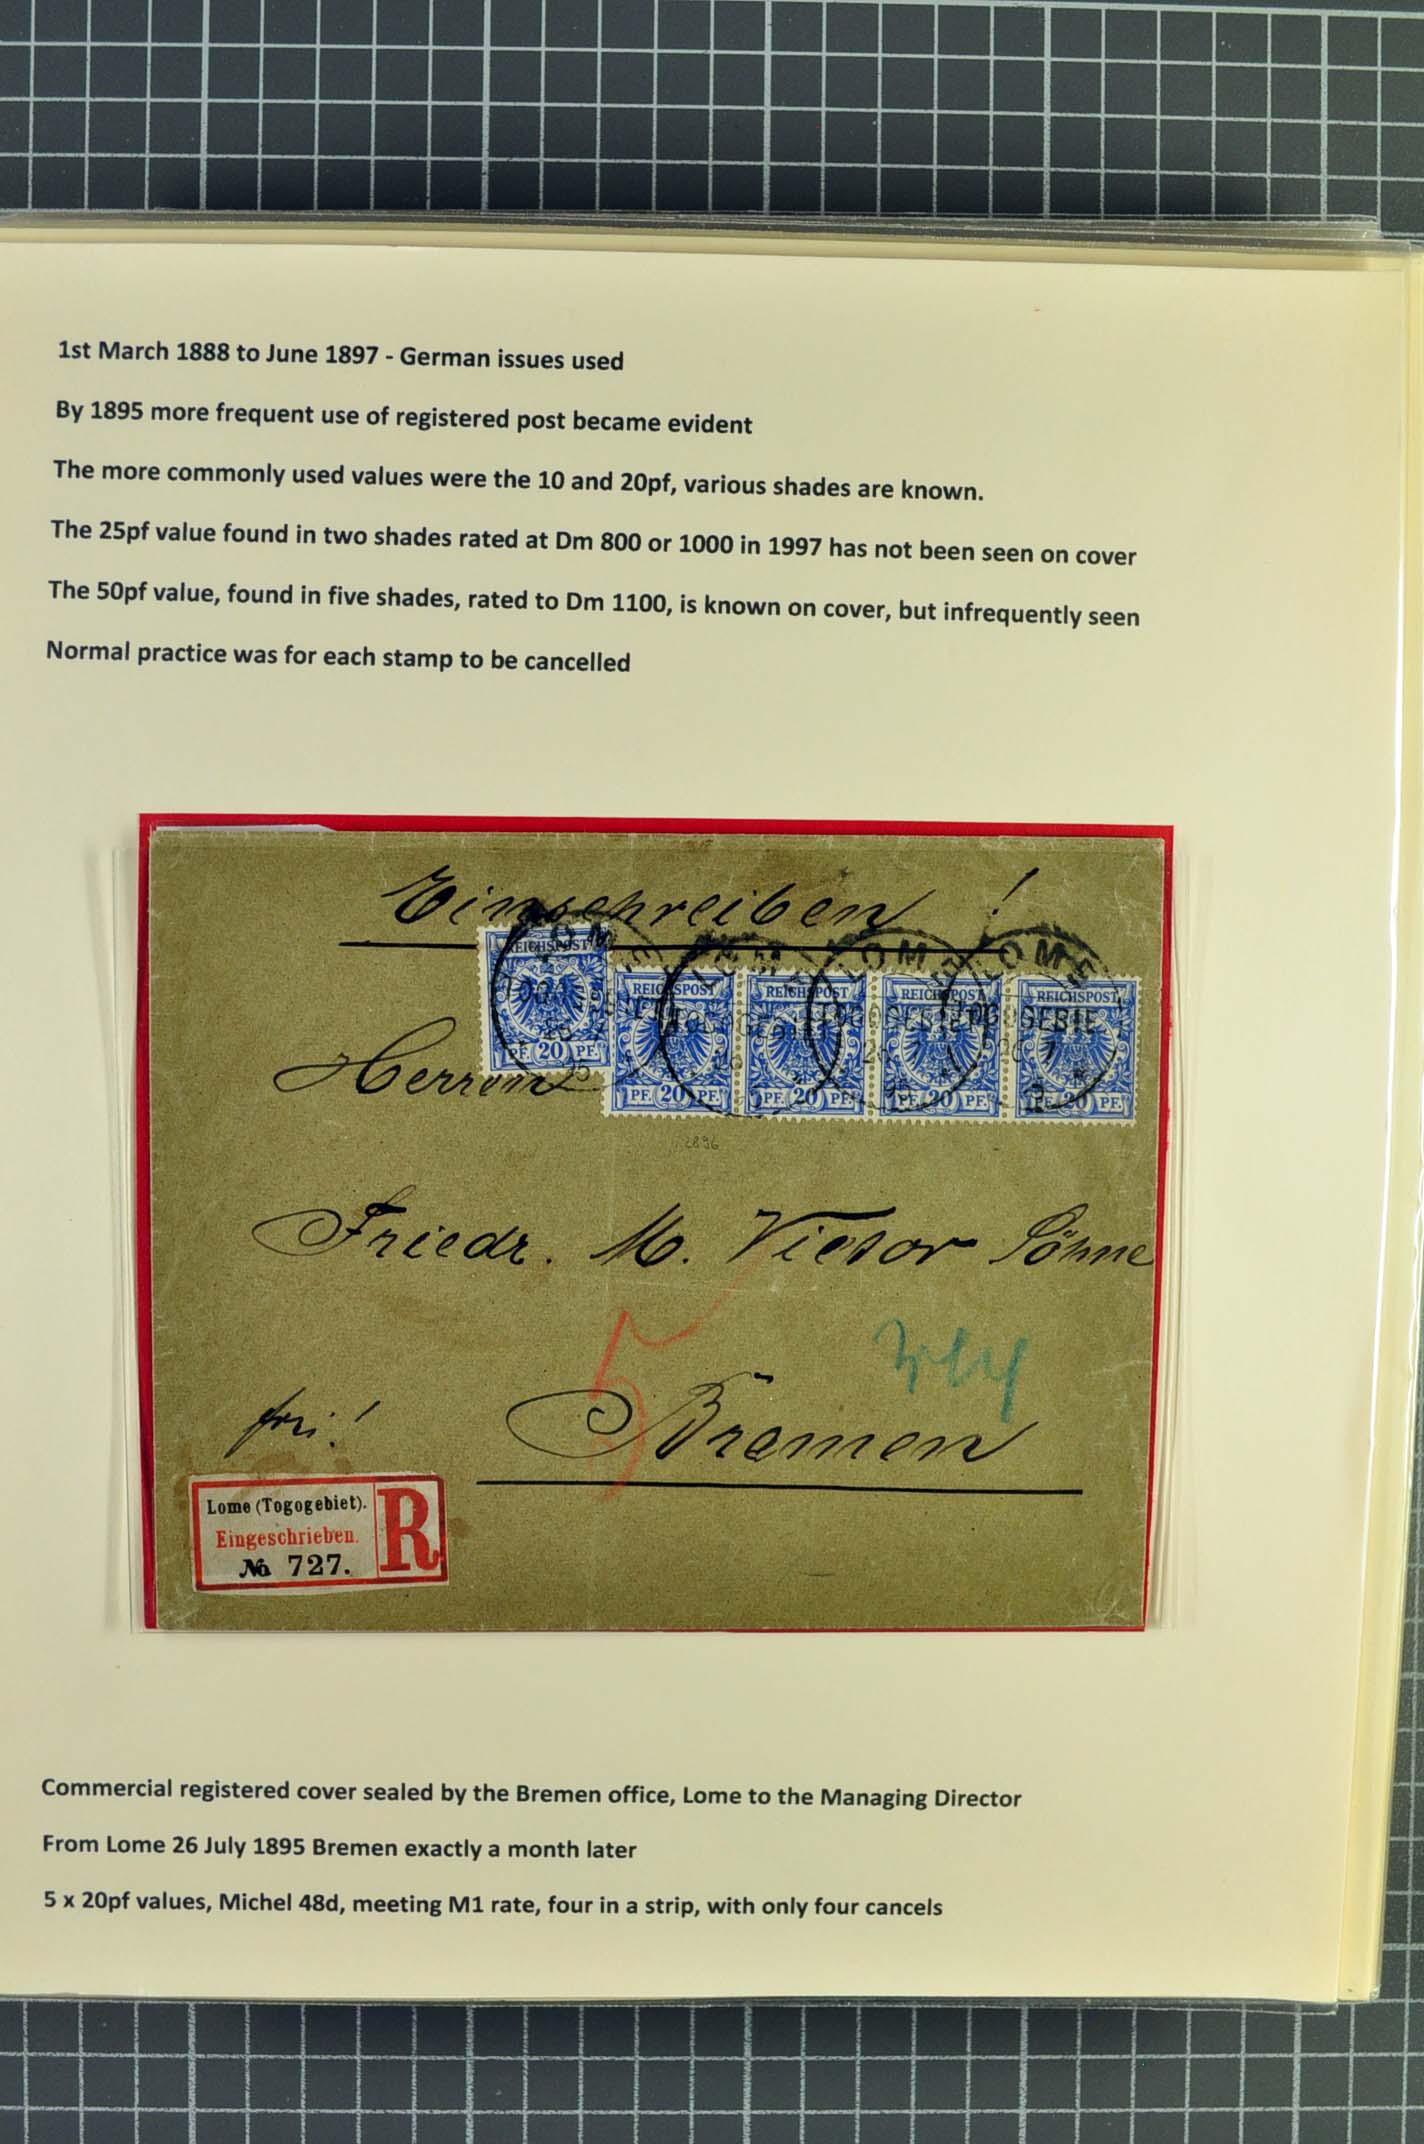 1st March 1888 to June 1897 - German issues used
By 1895 more frequent use of registered post became evident
The more commonly used values were the 10 and 20pf, various shades are known.
The 25pf value found in two shades rated at Dm 800 or 1000 in 1997 has not been seen on cover
The 50pf value, found in five shades, rated to Dm 1100, is known on cover, but infrequently seen
Normal practice was for each stamp to be cancelled
Einschreiben!
LOME LOME LOME LOME
REICHSPOST REICHSPOST REICHSPOST REICHSPOST REICHSPOST
TOGOGEBIET
PF. 20 PF. PF. 20 PF. PF. 20 PF. PF. 20 PF. PF. 20 PF.
Herren
Friedr. M. Vietor Söhne
5
Bremen
frei!
Lome (Togogebiet).
Eingeschrieben.
№ 727.
R
Commercial registered cover sealed by the Bremen office, Lome to the Managing Director
From Lome 26 July 1895 Bremen exactly a month later
5 x 20pf values, Michel 48d, meeting M1 rate, four in a strip, with only four cancels